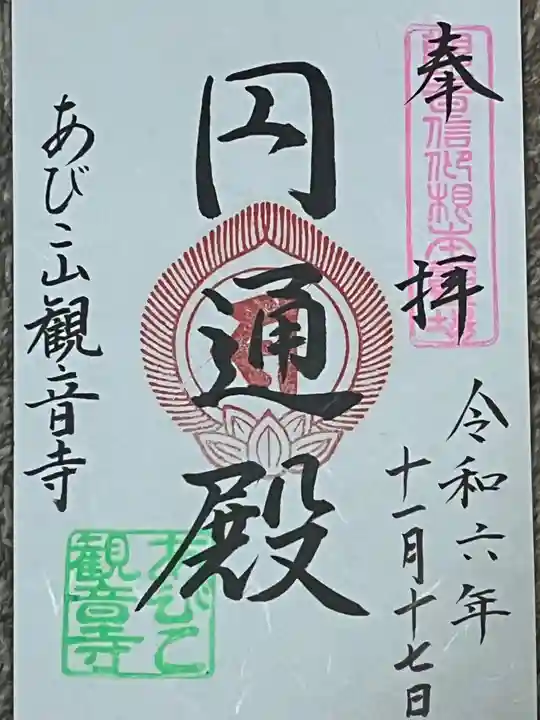 奉拝
令和六年
十一月十七日
円通殿
あびこ山観音寺
あびこ
観音寺